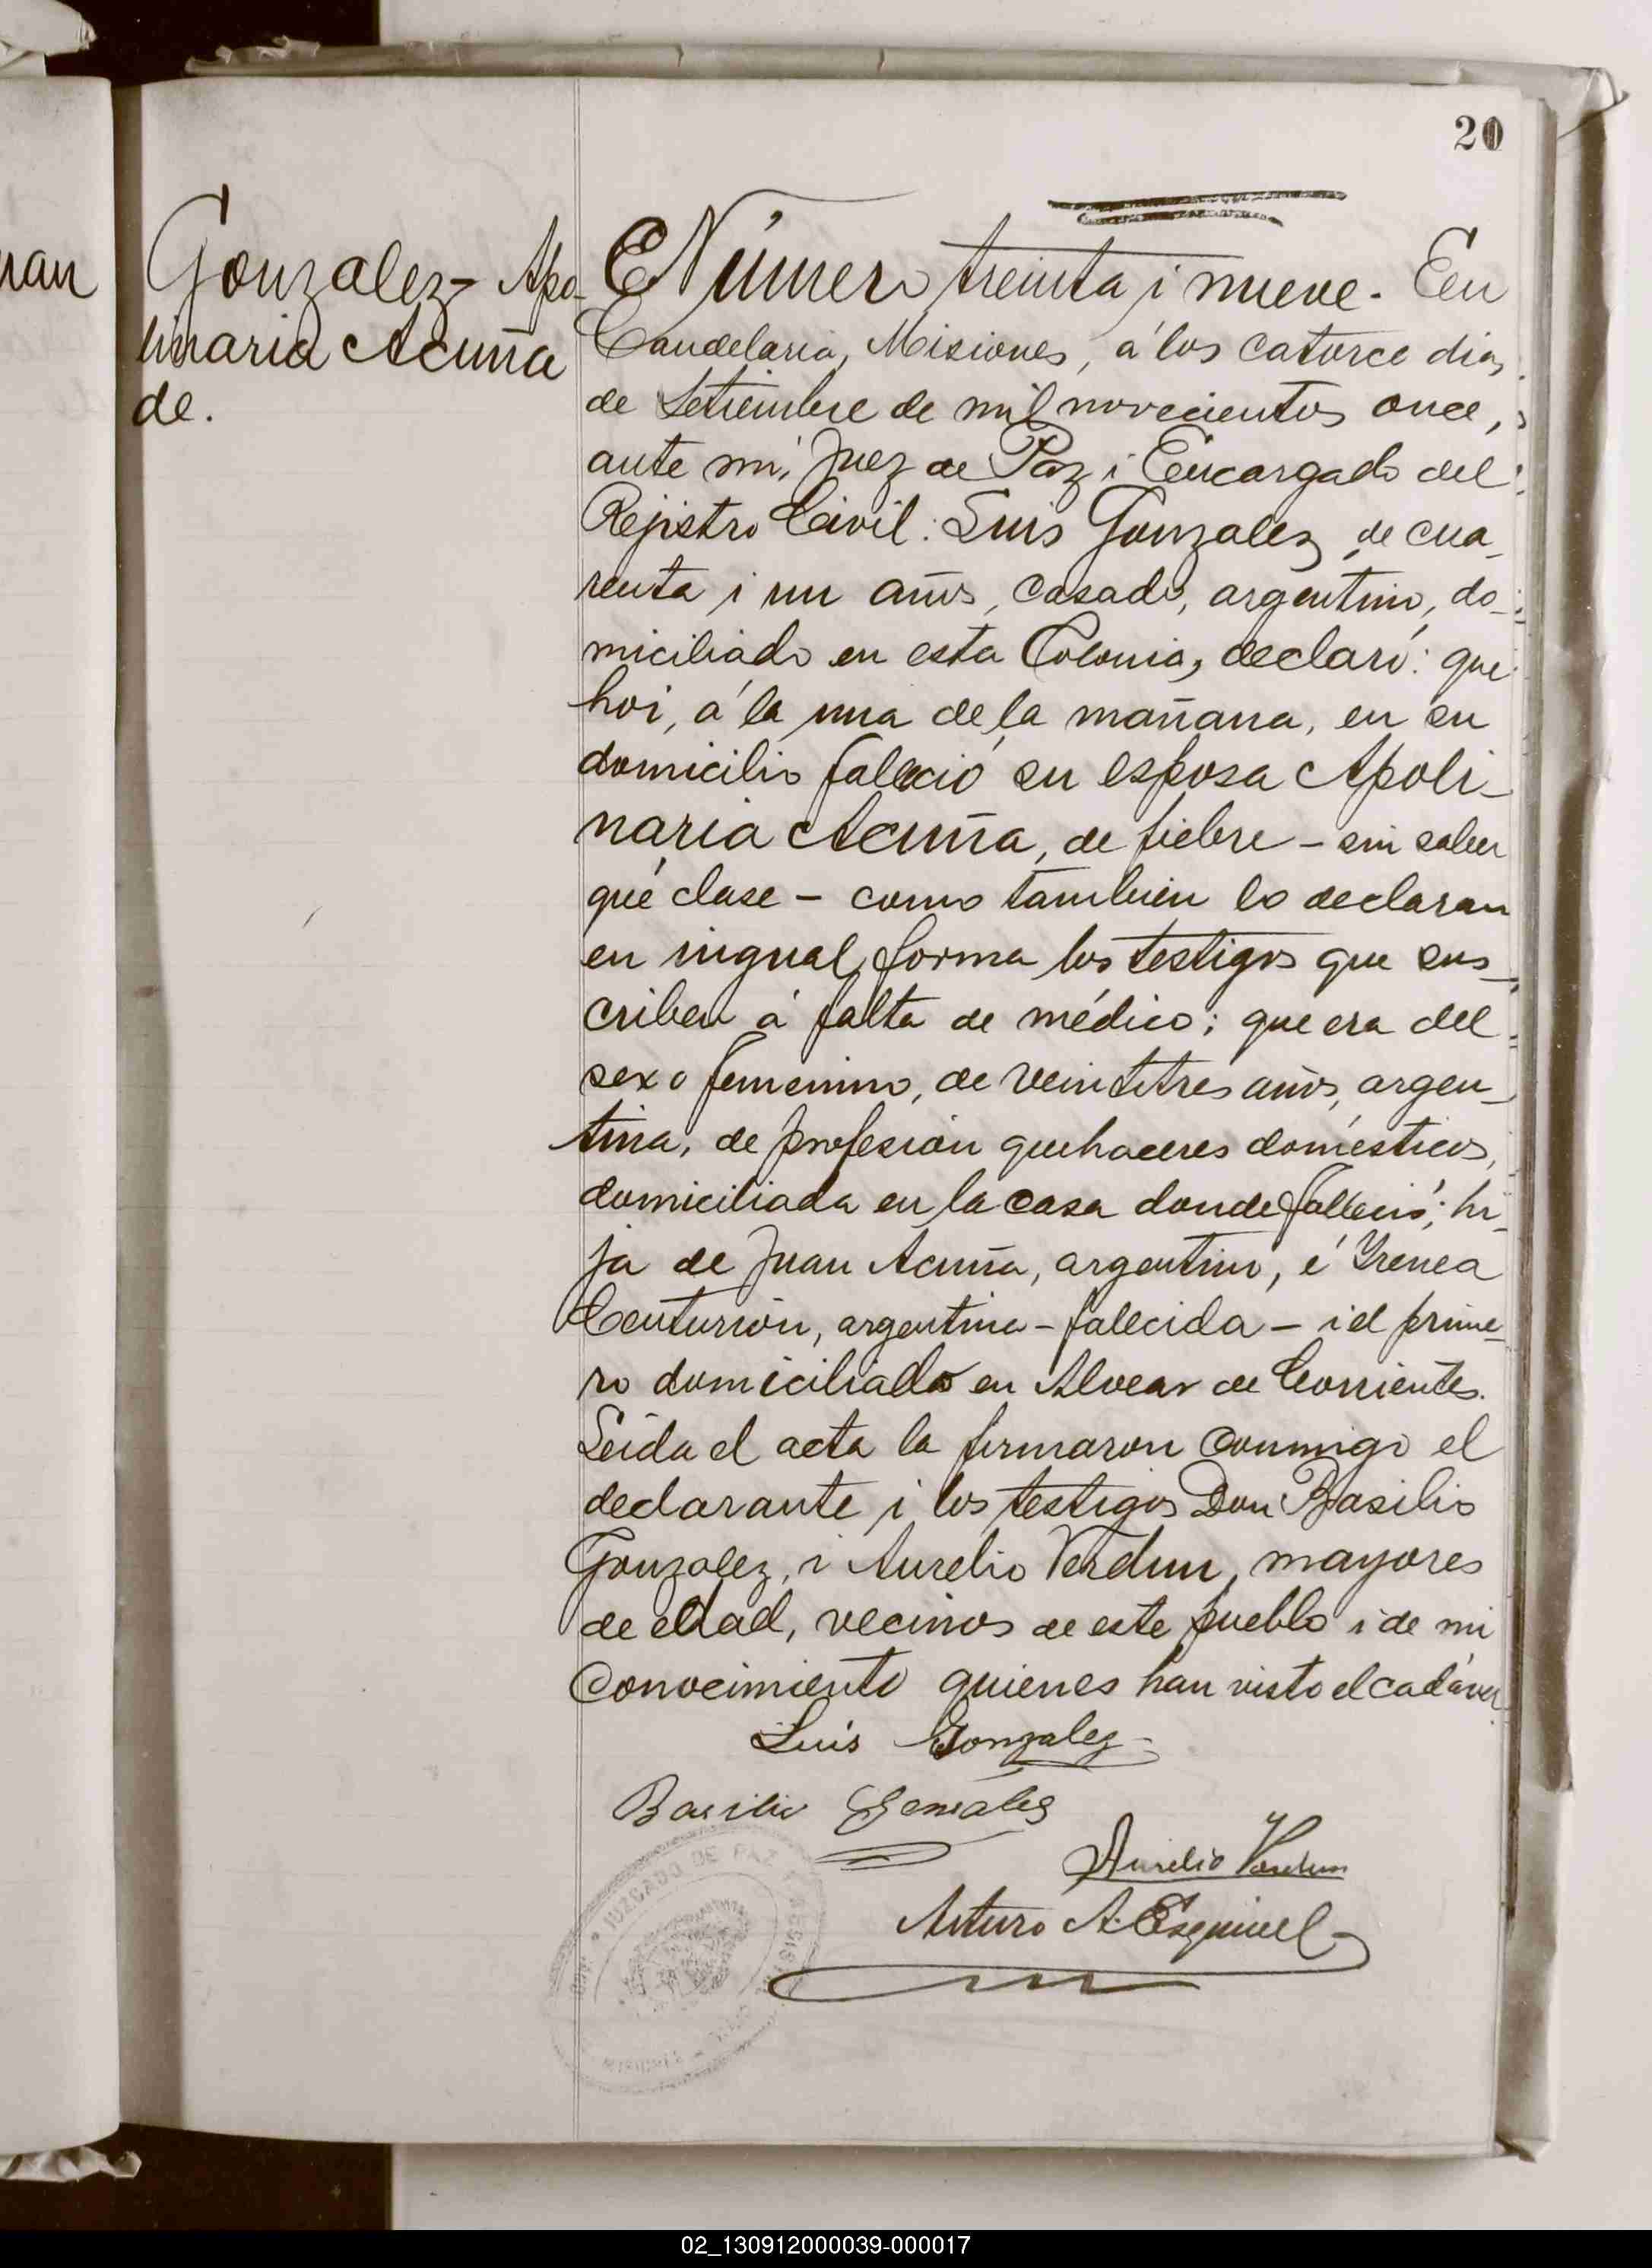 20
Gonzalez, Apo-
linaria Acuña
de.
Número treinta i nueve. En
Candelaria, Misiones, á los catorce dias
de Setiembre de mil novecientos once,
ante mi, Juez de Paz i Encargado del
Rejistro Civil: Luis Gonzalez, de cua-
renta i un años, casado, argentino, do-
miciliado en esta Colonia, declaró: que
hoi, á la una de la mañana, en su
domicilio falleció su esposa Apoli-
naria Acuña, de fiebre - sin saber
qué clase - como tambien lo declaran
en ingual forma los testigos que sus-
criben á falta de médico; que era del
sexo femenino, de veintitres años, argen-
tina, de profesion quehaceres domésticos,
domiciliada en la casa donde falleció; hi-
ja de Juan Acuña, argentino, é Yrenea
Centurión, argentina - fallecida - i el prime-
ro domiciliado en Alvear de Corrientes.
Leida el acta la firmaron conmigo el
declarante i los testigos Don Basilio
Gonzalez, i Aurelio Verdun, mayores
de edad, vecinos de este pueblo i de mi
conocimiento quienes han visto el cadáver
Luis Gonzalez
Basilio Gonzalez
Aurelio Verdun
Arturo A. Esquivel
JUZGADO DE PAZ
02_130912000039-000017